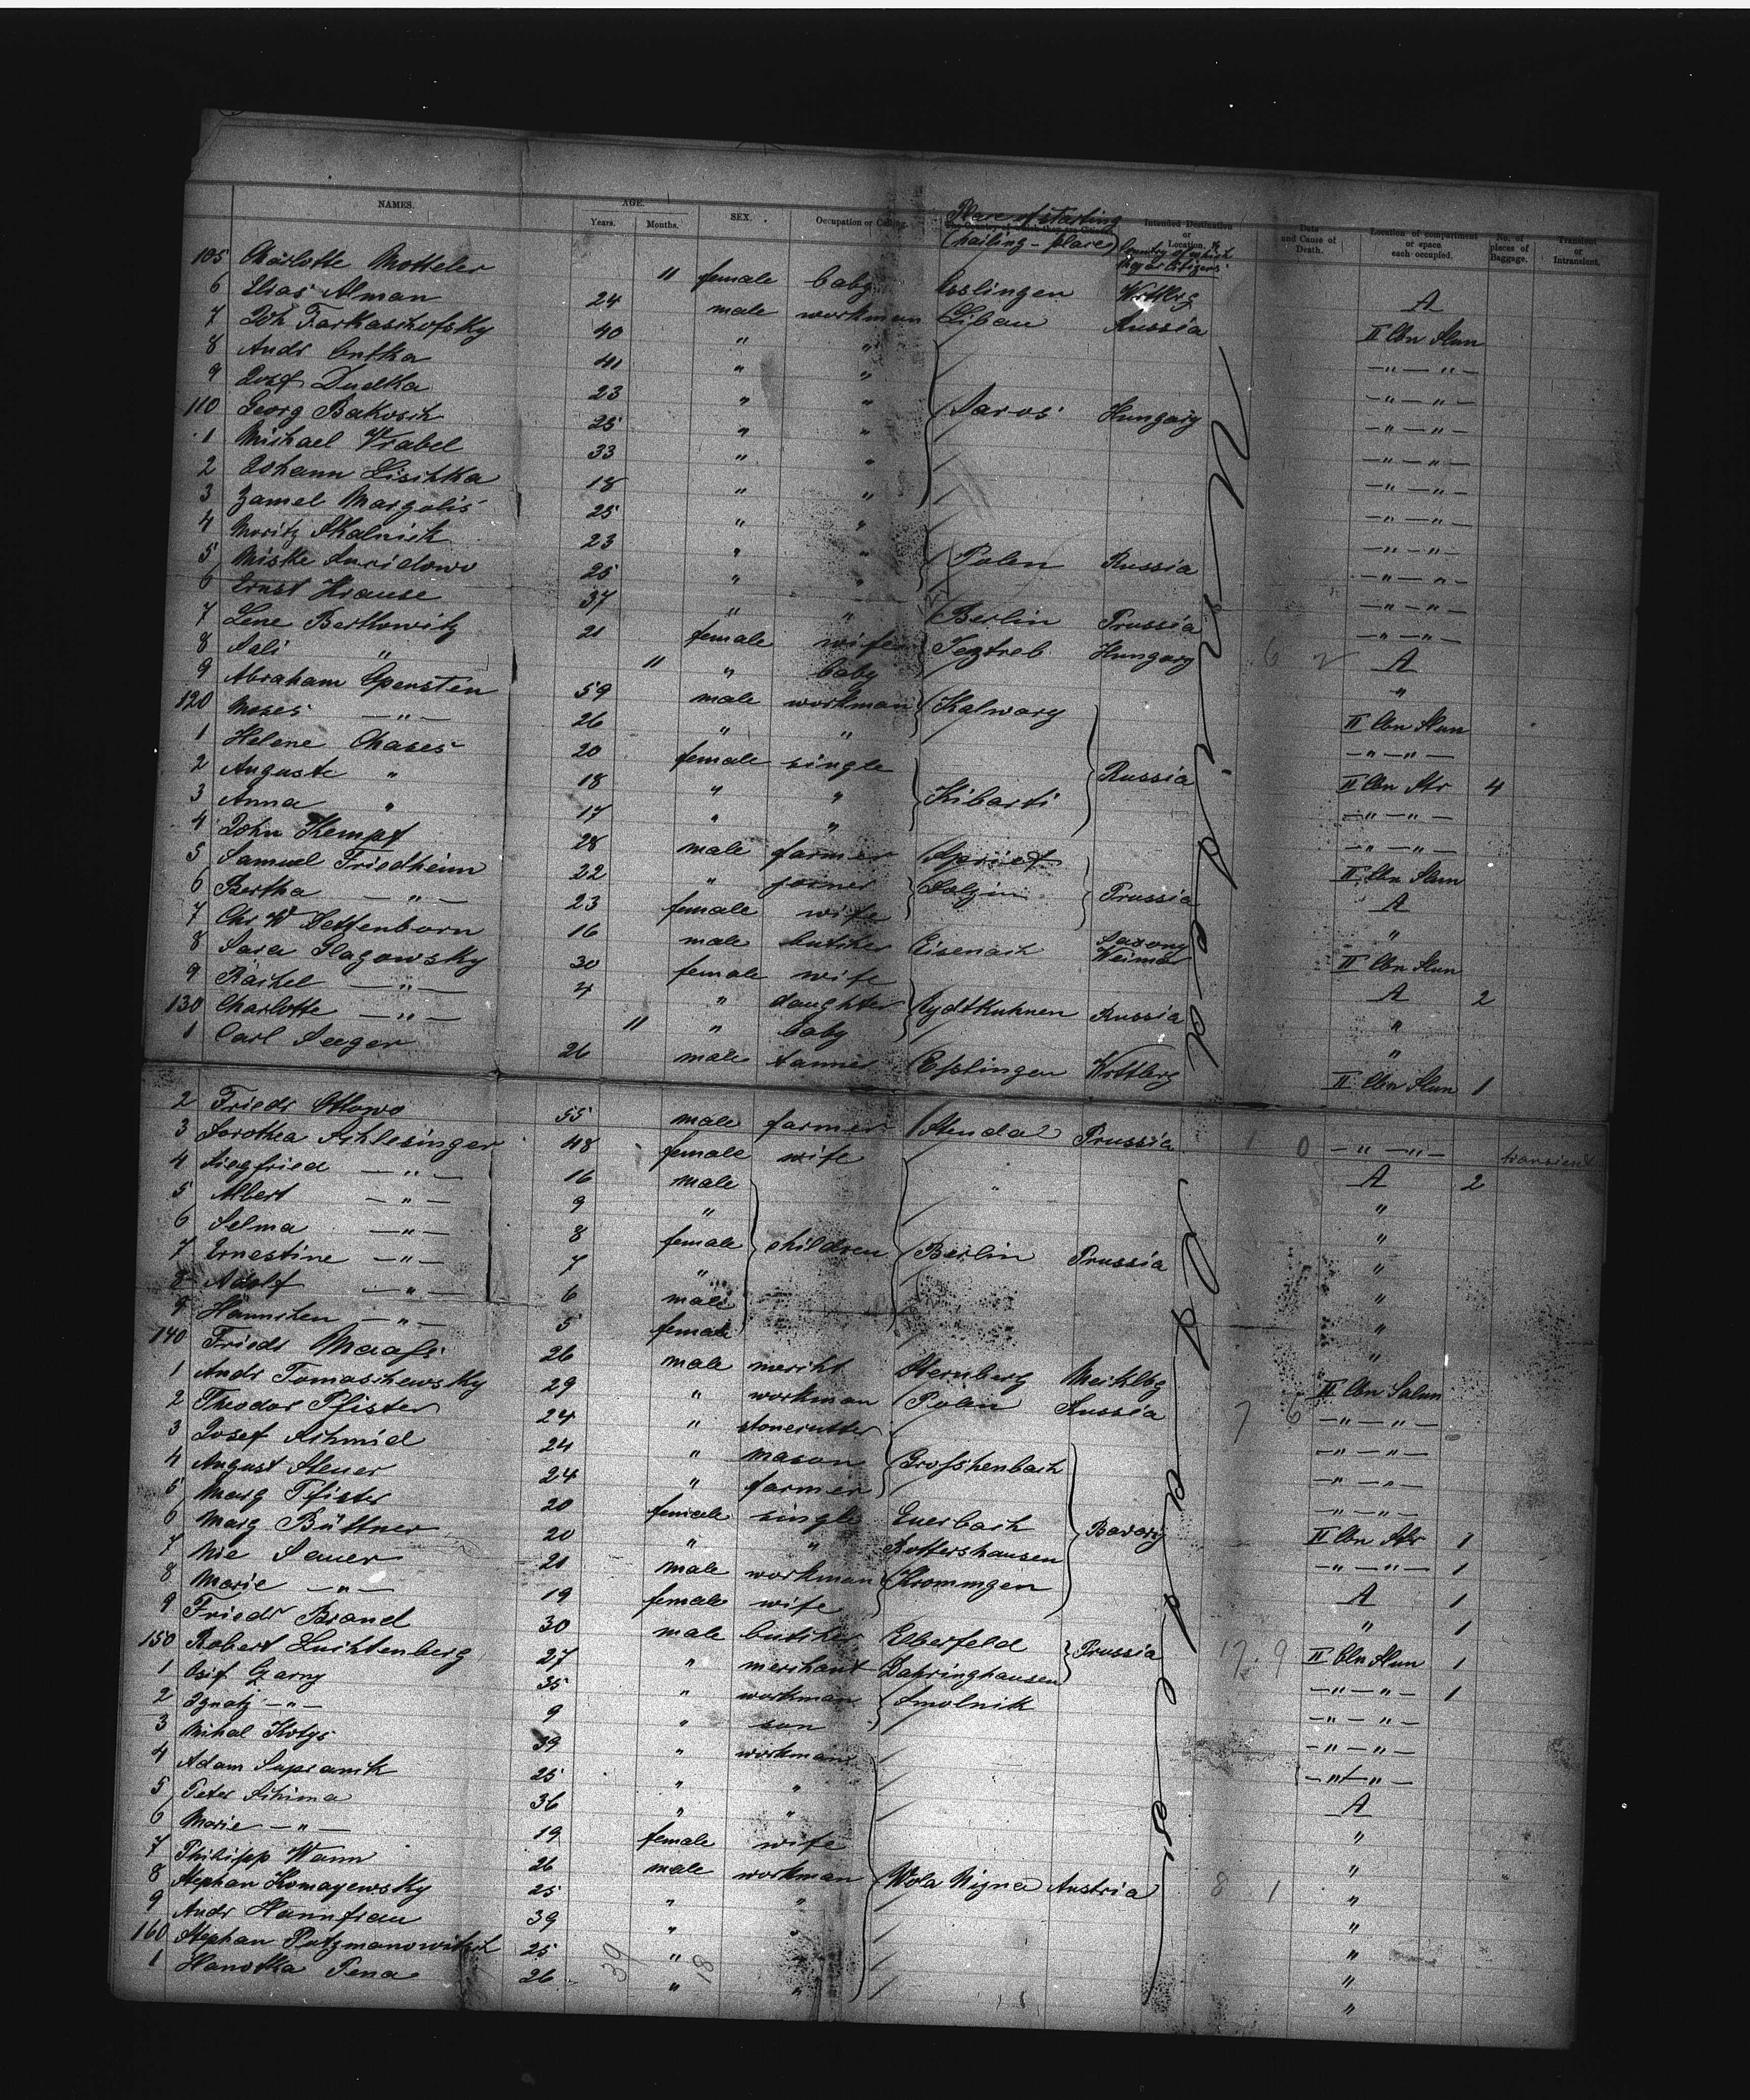 NAMES. AGE. Years. Months. SEX. Occupation or Calling. Place of starting (hailing-place) Intended Destination or Location, Country of which they are Citizens Date and Cause of Death. Location of compartment or space each occupied. No. of pieces of Baggage. Transient or Intransient.
105 Charlotte Motteler 11 female baby Esslingen Wrttbrg A
6 Elias Alman 24 male workman Libau Russia II Cbn Slun
7 Joh Tarkaschofsky 40 " " — " — " —
8 Andr 41 " " — " — " —
9 Josef Dudka 23 " " Saros Hungary — " — " —
110 Georg Bakosch 25 " " — " — " —
1 Michael Vrabel 33 " " — " — " —
2 Johann Lischka 18 " " — " — " —
3 Zamel Margolis 25 " " — " — " —
4 Moritz Skalnick 23 " " Polen Russia — " — " —
5 Miske 25 " " — " — " —
6 Ernst Krause 37 " " Berlin Prussia — " — " —
7 Lene Berkowitz 21 female wife Hungary 6 2 A
8 Sali " 11 " baby "
9 Abraham 59 male workman Kalwary II Cbn Slun
120 Moses — " — 26 " " — " — " —
1 Helene Chases 20 female single Russia II Cbn Str 4
2 Auguste " 18 " " Kibarti — " — " —
3 Anna " 17 " " — " — " —
4 John Kempf 28 male farmer II Cbn Slun
5 Samuel Friedheim 22 " joiner Prussia A
6 Bertha — " — 23 female wife "
7 Chr W Dettenborn 16 male butcher Eisenach Saxony Weimar II Cbn Slun
8 Sara Slagowsky 30 female wife A 2
9 Rachel — " — 4 " daughter Eydtkuhnen Russia "
130 Charlotte — " — 11 " baby "
1 Carl Seeger 26 male tanner Esslingen Wrttbrg II Cbn Slun 1
2 Friedr Ottowo 55 male farmer Stendal Prussia 1 0 — " — " — transient
3 Dorothea Schlesinger 48 female wife A 2
4 Siegfried — " — 16 male "
5 Albert — " — 9 " "
6 Selma — " — 8 female children Berlin Prussia "
7 Ernestine — " — 7 " "
8 Adolf — " — 6 male "
9 Hannchen — " — 5 female "
140 Friedr Maass 26 male mercht Sternberg Mecklbg II Cbn Salun
1 Andr Tomaschewsky 29 " workman Polen Russia 7 6 — " — " —
2 Theodor Pfister 24 " stonecutter — " — " —
3 Josef Schmid 24 " mason — " — " —
4 August Steuer 24 " farmer — " — " —
5 Marg Pfister 20 female single Euerbach Bavary II Cbn Str 1
6 Marg Büttner 20 " " Rottershausen — " — " — 1
7 Nic Sauer 21 male workman A 1
8 Marie — " — 19 female wife " 1
9 Friedr Brand 30 male butcher Elberfeld Prussia 17 9 II Cbn Slun 1
150 Robert Luchtenberg 27 " merchant Dahringhausen — " — " — 1
1 Osif Czarny 35 " workman Smolnik — " — " —
2 Ignatz — " — 9 " son — " — " —
3 Mihal Kotys 39 " workman — " — " —
4 Adam 25 " " A
5 Peter Schima 36 " " "
6 Marie — " — 19 female wife "
7 Philipp Wann 26 male workman Wola Nigna Austria 8 1 "
8 Stephan Komayewsky 25 " " "
9 Andr 39 " " "
160 Stephan 25 " " "
1 Hanotka Pena 26 39 18 " " "